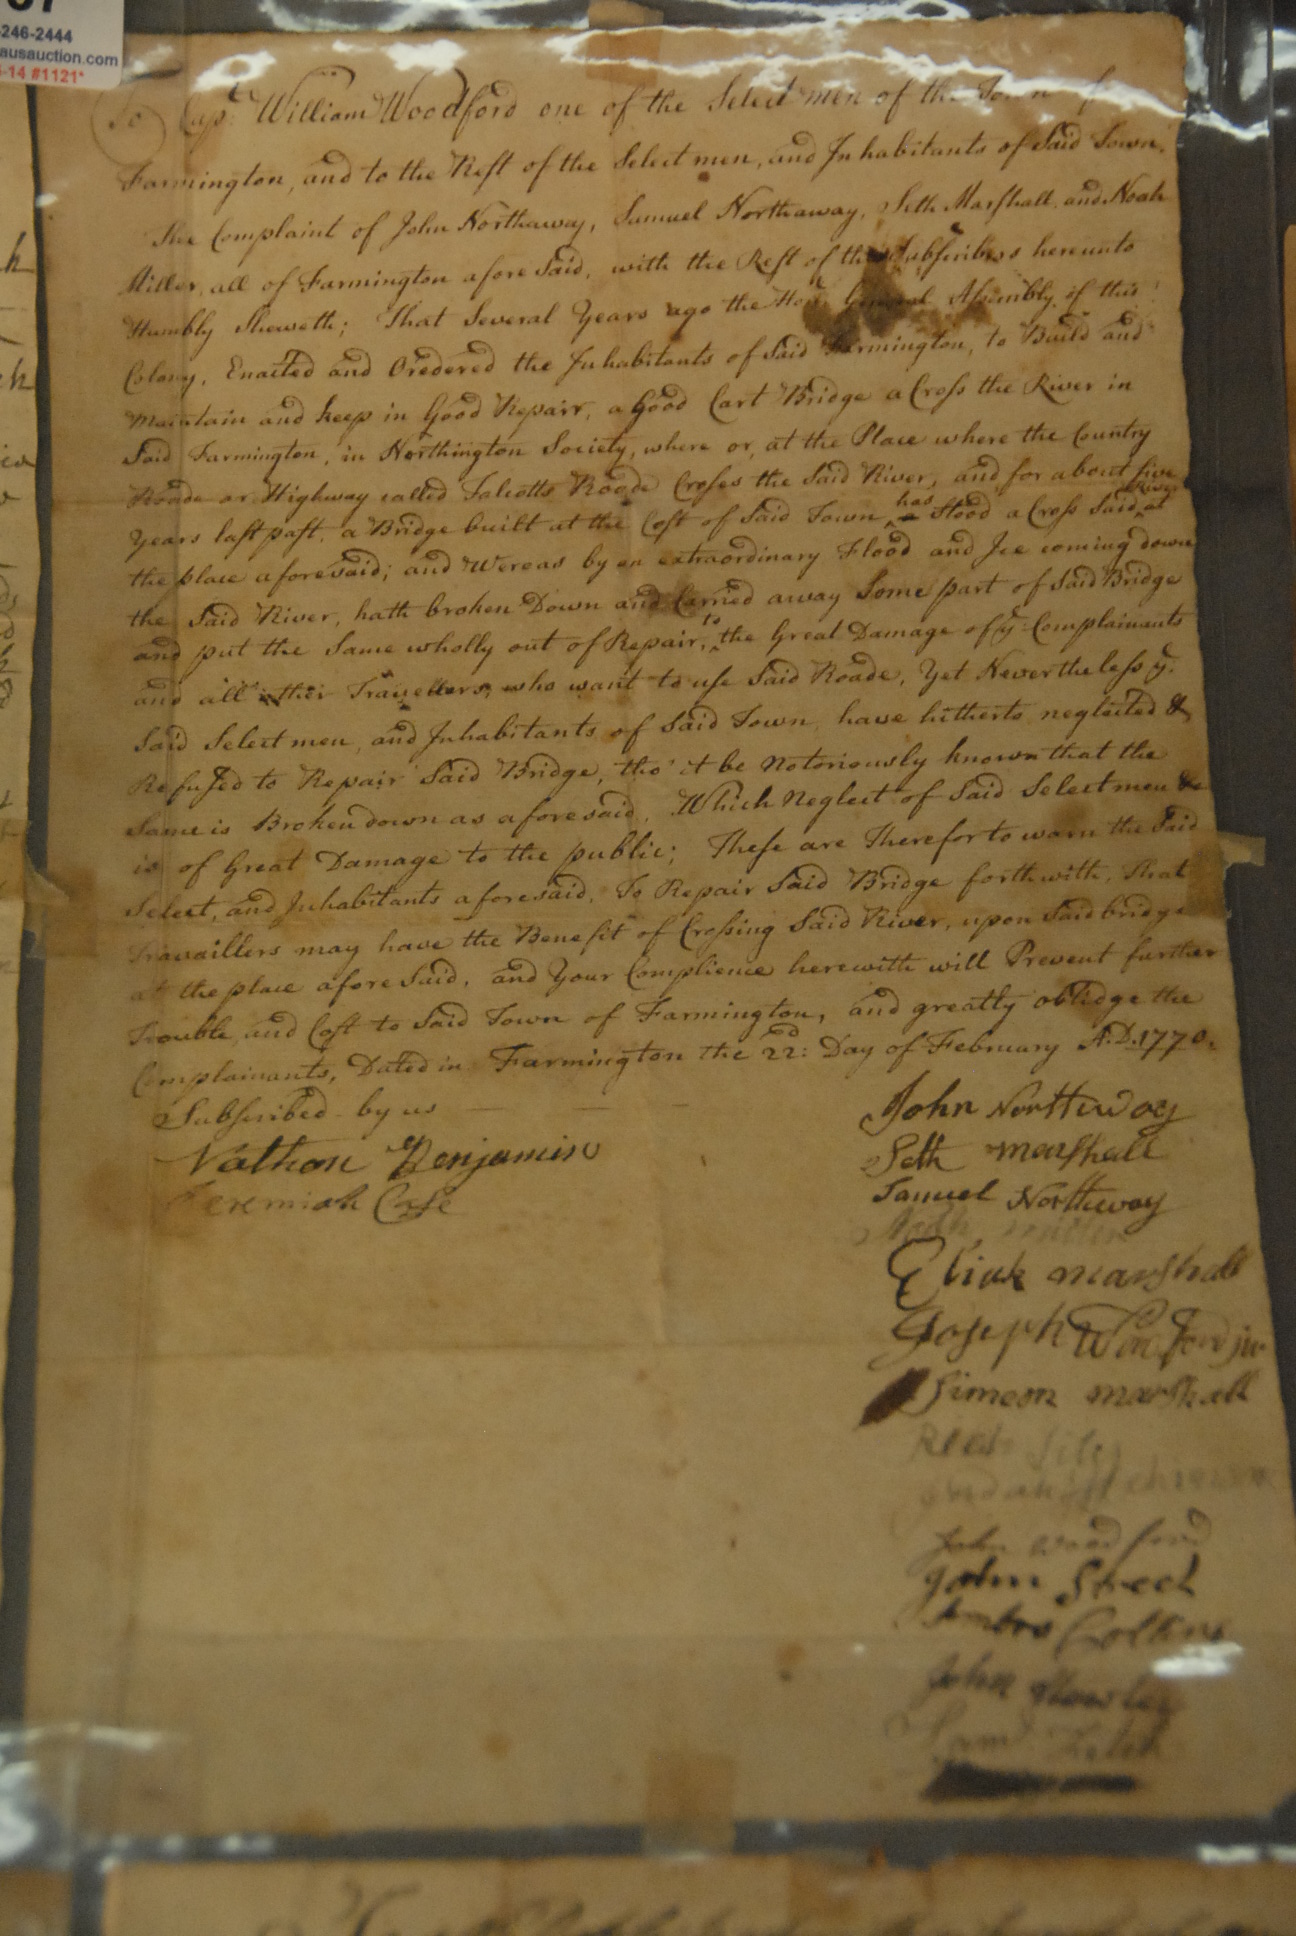 -246-2444
ausauction.com
-14 #1121*
To Capt. William Woodford one of the Select men of the Town of
Farmington, and to the Rest of the Select men, and Inhabitants of Said Town,
The Complaint of John Northaway, Samuel Northaway, Seth Marshall, and Noah
Miller, all of Farmington afore Said, with the Rest of the Subscribers hereunto
Humbly Sheweth; That Several Years ago the Hon: General Assembly of this
Colony, Enacted and Oredered the Inhabitants of Said Farmington, to Build and
Maintain and keep in Good Repairr, a Good Cart Bridge a Cross the River in
Said Farmington, in Northington Society, where or, at the Place where the Country
Roade or Highway called Talcotts Roade Croses the Said River, and for about five
Years last past, a Bridge built at the Cost of Said Town has Stood a Cross Said River at
the place aforesaid; and Wereas by an extraordinary Flood and Ice coming down
the Said River, hath broken Down and Carried away Some part of Said Bridge
and put the Same wholly out of Repair, to the Great Damage of ye Complainants
and all other Travellers, who want to use Said Roade, Yet Nevertheless ye
Said Select men, and Inhabitants of Said Town, have hitherto neglected &
Refused to Repair Said Bridge, tho' it be Notoriously known that the
Same is Broken down as aforesaid, Which Neglect of Said Selectmen &c
is of Great Damage to the public; These are Therefor to warn the Said
Select, and Inhabitants aforesaid, To Repair Said Bridge forthwith, that
Travaillers may have the Benefit of Crossing Said River, upon Said bridge
at the place afore Said, and Your Complience herewith will Prevent further
Trouble, and Cost to Said Town of Farmington, and greatly oblidge the
Complainants, Dated in Farmington the 22d: Day of February A.D. 1770.
Subscribed by us
John Northway
Nathan Benjamin
Seth Marshall
Jeremiah Case
Samuel Northway
Noah Miller
Eliak marshall
Joseph Woodford jur
Simeon marshall
John Woodford
John Street
Ambros Collins
John
Saml